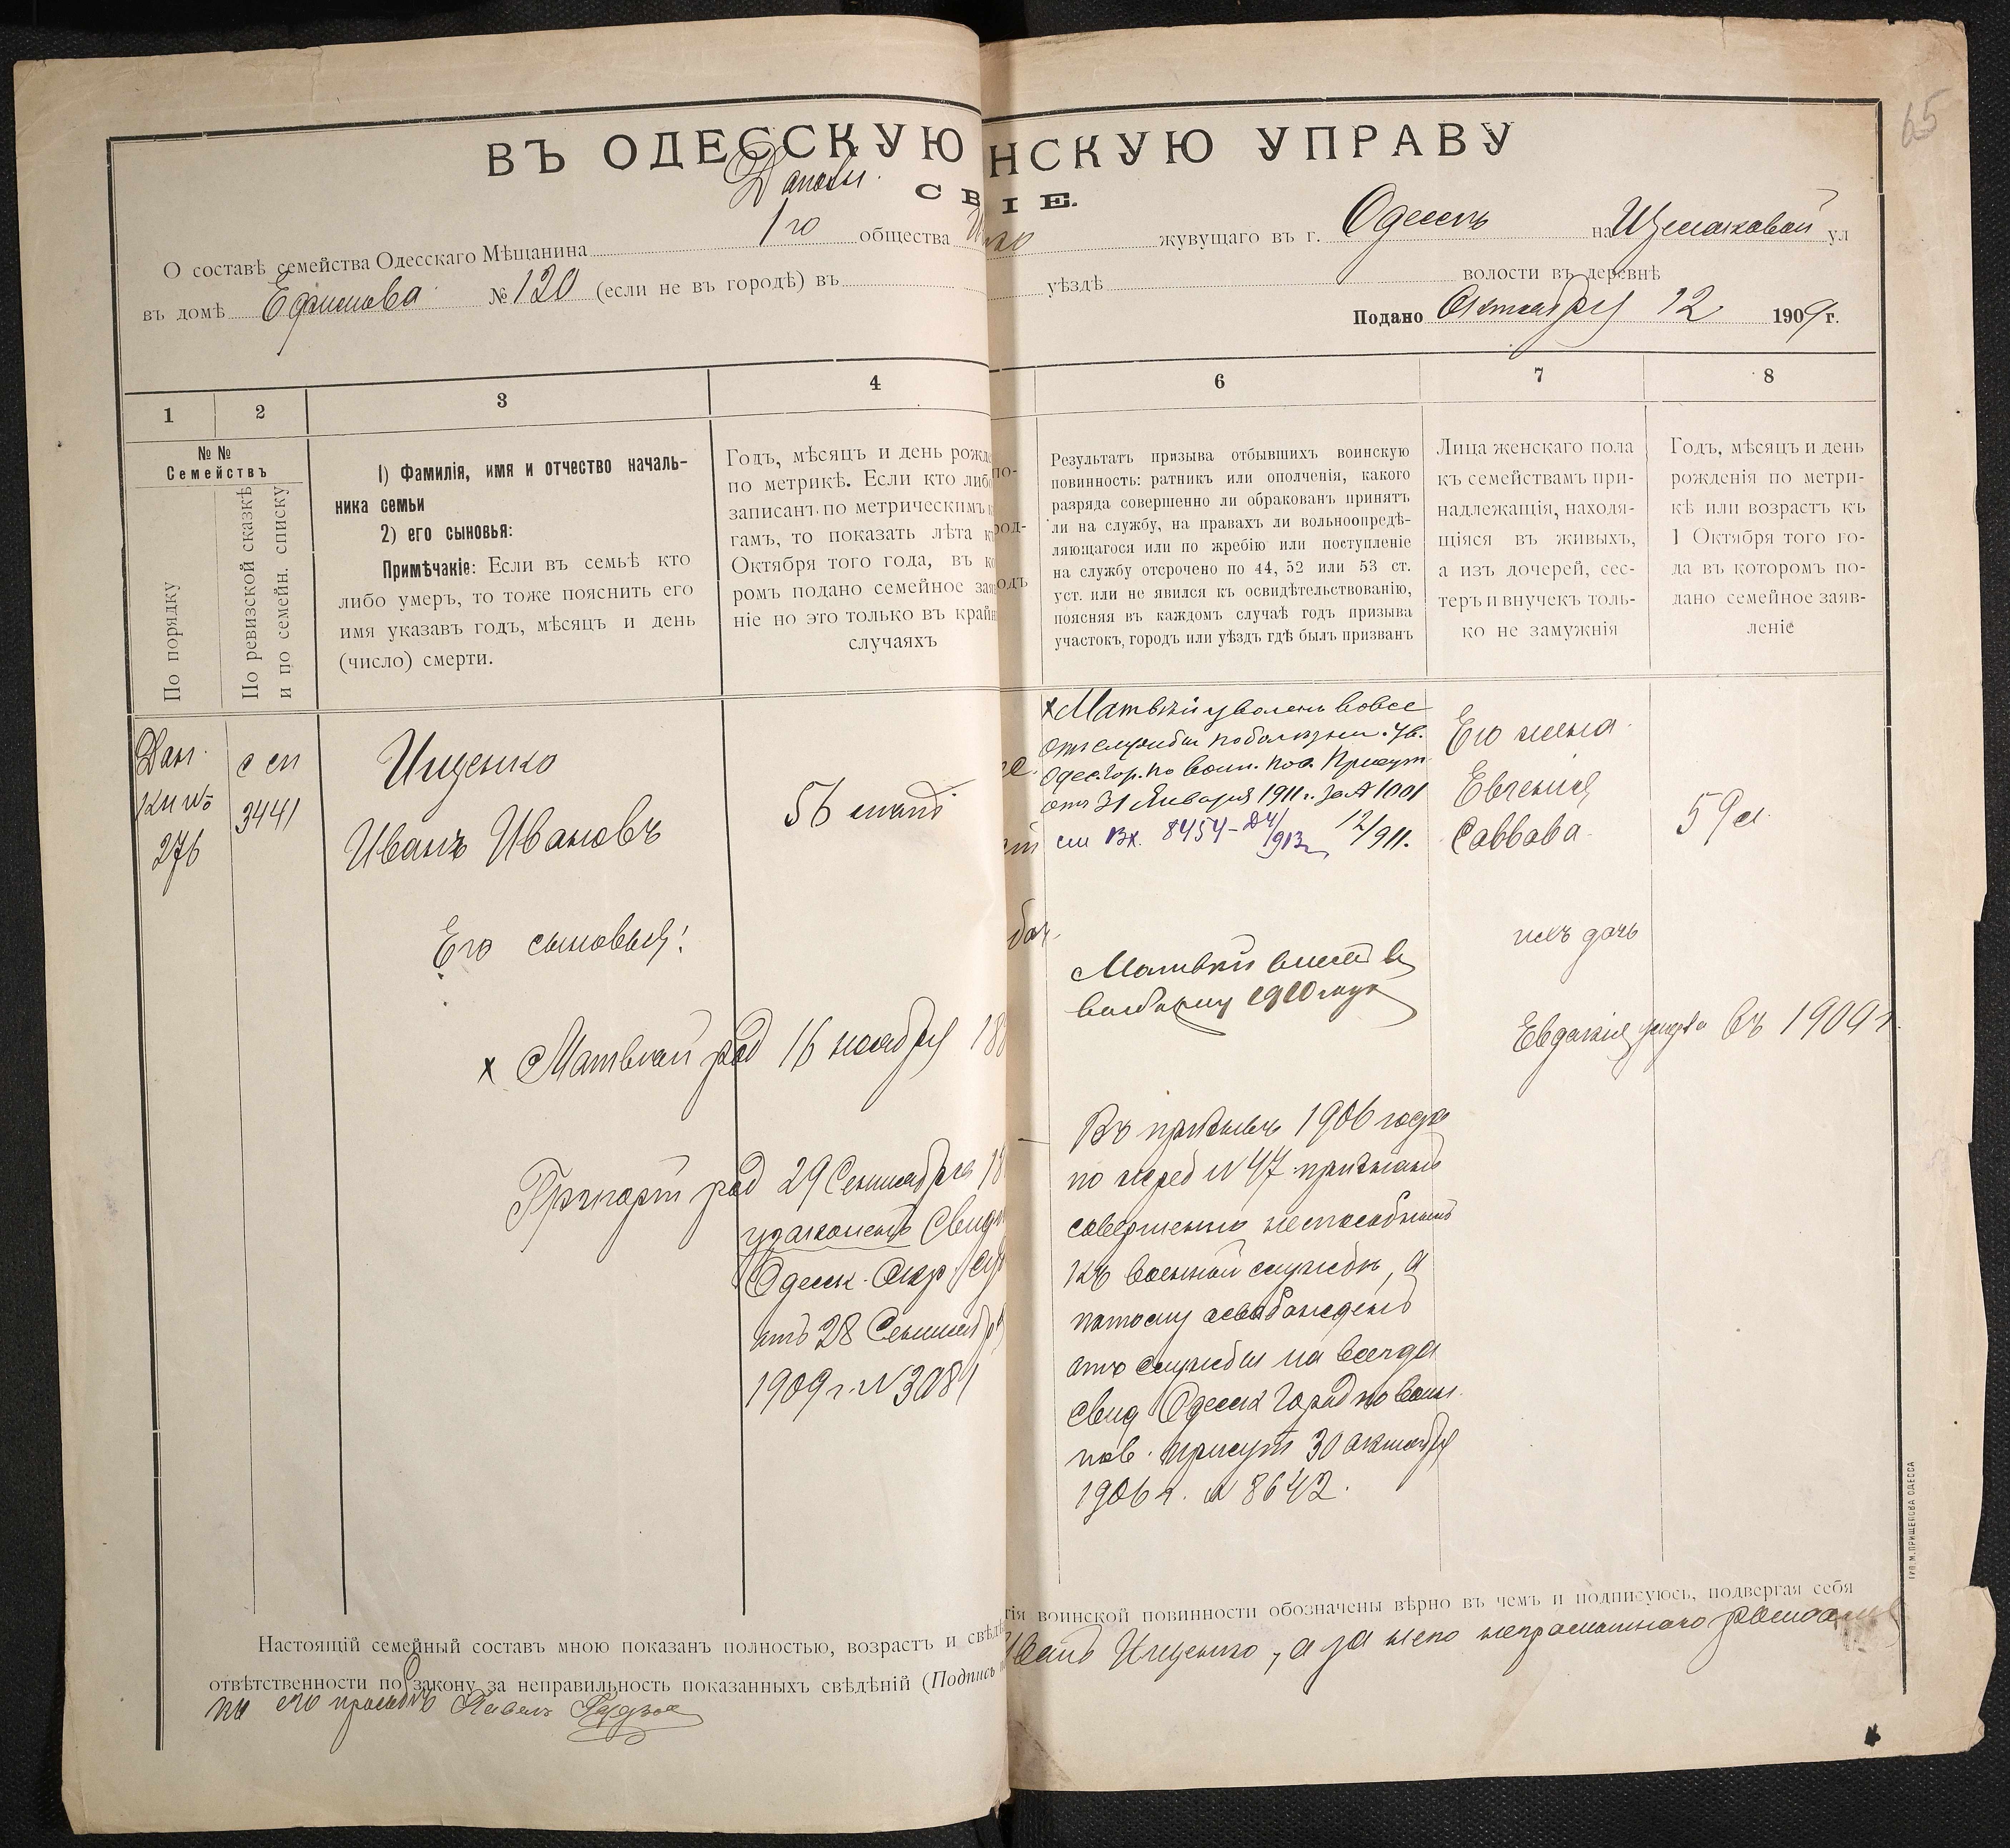 65
ВЪ ОДЕССКУЮ НСКУЮ УПРАВУ
СВ ІЕ.
О составѣ семейства Одесскаго Мѣщанина 1го общества жувущаго въ г. Одессѣ на ул
въ домѣ Ефимова № 120 (если не въ городѣ) въ уѣздѣ волости въ деревнѣ
Подано Октября 12 1909 г.
1
2
3
4
6
7
8
№ №
Семействъ
По порядку
По ревизской сказкѣ
и по семейн. списку
1) Фамилія, имя и отчество началь-
ника семьи
2) его сыновья:
Примѣчакіе: Если въ семьѣ кто
либо умеръ, то тоже пояснить его
имя указавъ годъ, мѣсяцъ и день
(число) смерти.
Годъ, мѣсяцъ и день рожд
по метрикѣ. Если кто либо
записанъ по метрическимъ к
гамъ, то показать лѣта к
Октября того года, въ ко
ромъ подано семейное зая
ніе но это только въ край
случаяхъ
по-
род-
одъ
Результатъ призыва отбывшихъ воинскую
повинность: ратникъ или ополченія, какого
разряда совершенно ли обракованъ принятъ
ли на службу, на правахъ ли вольноопредѣ-
ляющагося или по жребію или поступленіе
на службу отсрочено по 44, 52 или 53 ст.
уст. или не явился къ освидѣтельствованію,
поясняя въ каждомъ случаѣ годъ призыва
участокъ, городъ или уѣздъ гдѣ былъ призванъ
Лица женскаго пола
къ семействамъ при-
надлежащія, находя-
щіяся въ живыхъ,
а изъ дочерей, сес-
теръ и внучекъ толь-
ко не замужнія
Годъ, мѣсяцъ и день
рожденія по метри-
кѣ или возрастъ къ
1 Октября того го-
да въ которомъ по-
дано семейное заяв-
леніе
276
с сп
3441
Ищенко
Иванъ Ивановъ
56
Его сыновья:
х Матвѣй род 16 ноября 18
Григорій род 29 Сентября 18
узаконенъ Свид
Одесск. Окр. Суд
отъ 28 Сентябр
1909 г. № 3081
х Матвѣй уволенъ вовсе
отъ службы по болѣзни. Ув.
Одес. Гор. по воин. пов. Присут
отъ 31 Января 1911 г. за № 1001
см Вх. 8454 12/911.
Матвѣй
1910 года
Въ призывъ 1906 года
по жереб № 47 признанъ
совершенно неспособнымъ
къ военной службѣ, а
потому освобожденъ
отъ службы на всегда
свид Одесск Город по воин.
пов. присут 30 октября
1906 г. № 8642.
Его жена
Евгенія
Саввова
59 л.
ихъ дочь
Евдокія умерла въ 1909 г.
Настоящій семейный составъ мною показанъ полностью, возрастъ и свѣдѣ
тія воинской повинности обозначены вѣрно въ чемъ и подписуюсь, подвергая себя
отвѣтственности по закону за неправильность показанныхъ свѣдѣній (Подпись
Иванъ Ищенко, а за него неграмотнаго
по его просьбѣ Павелъ
ТИП. М. ПРИЩЕПОВА ОДЕССА